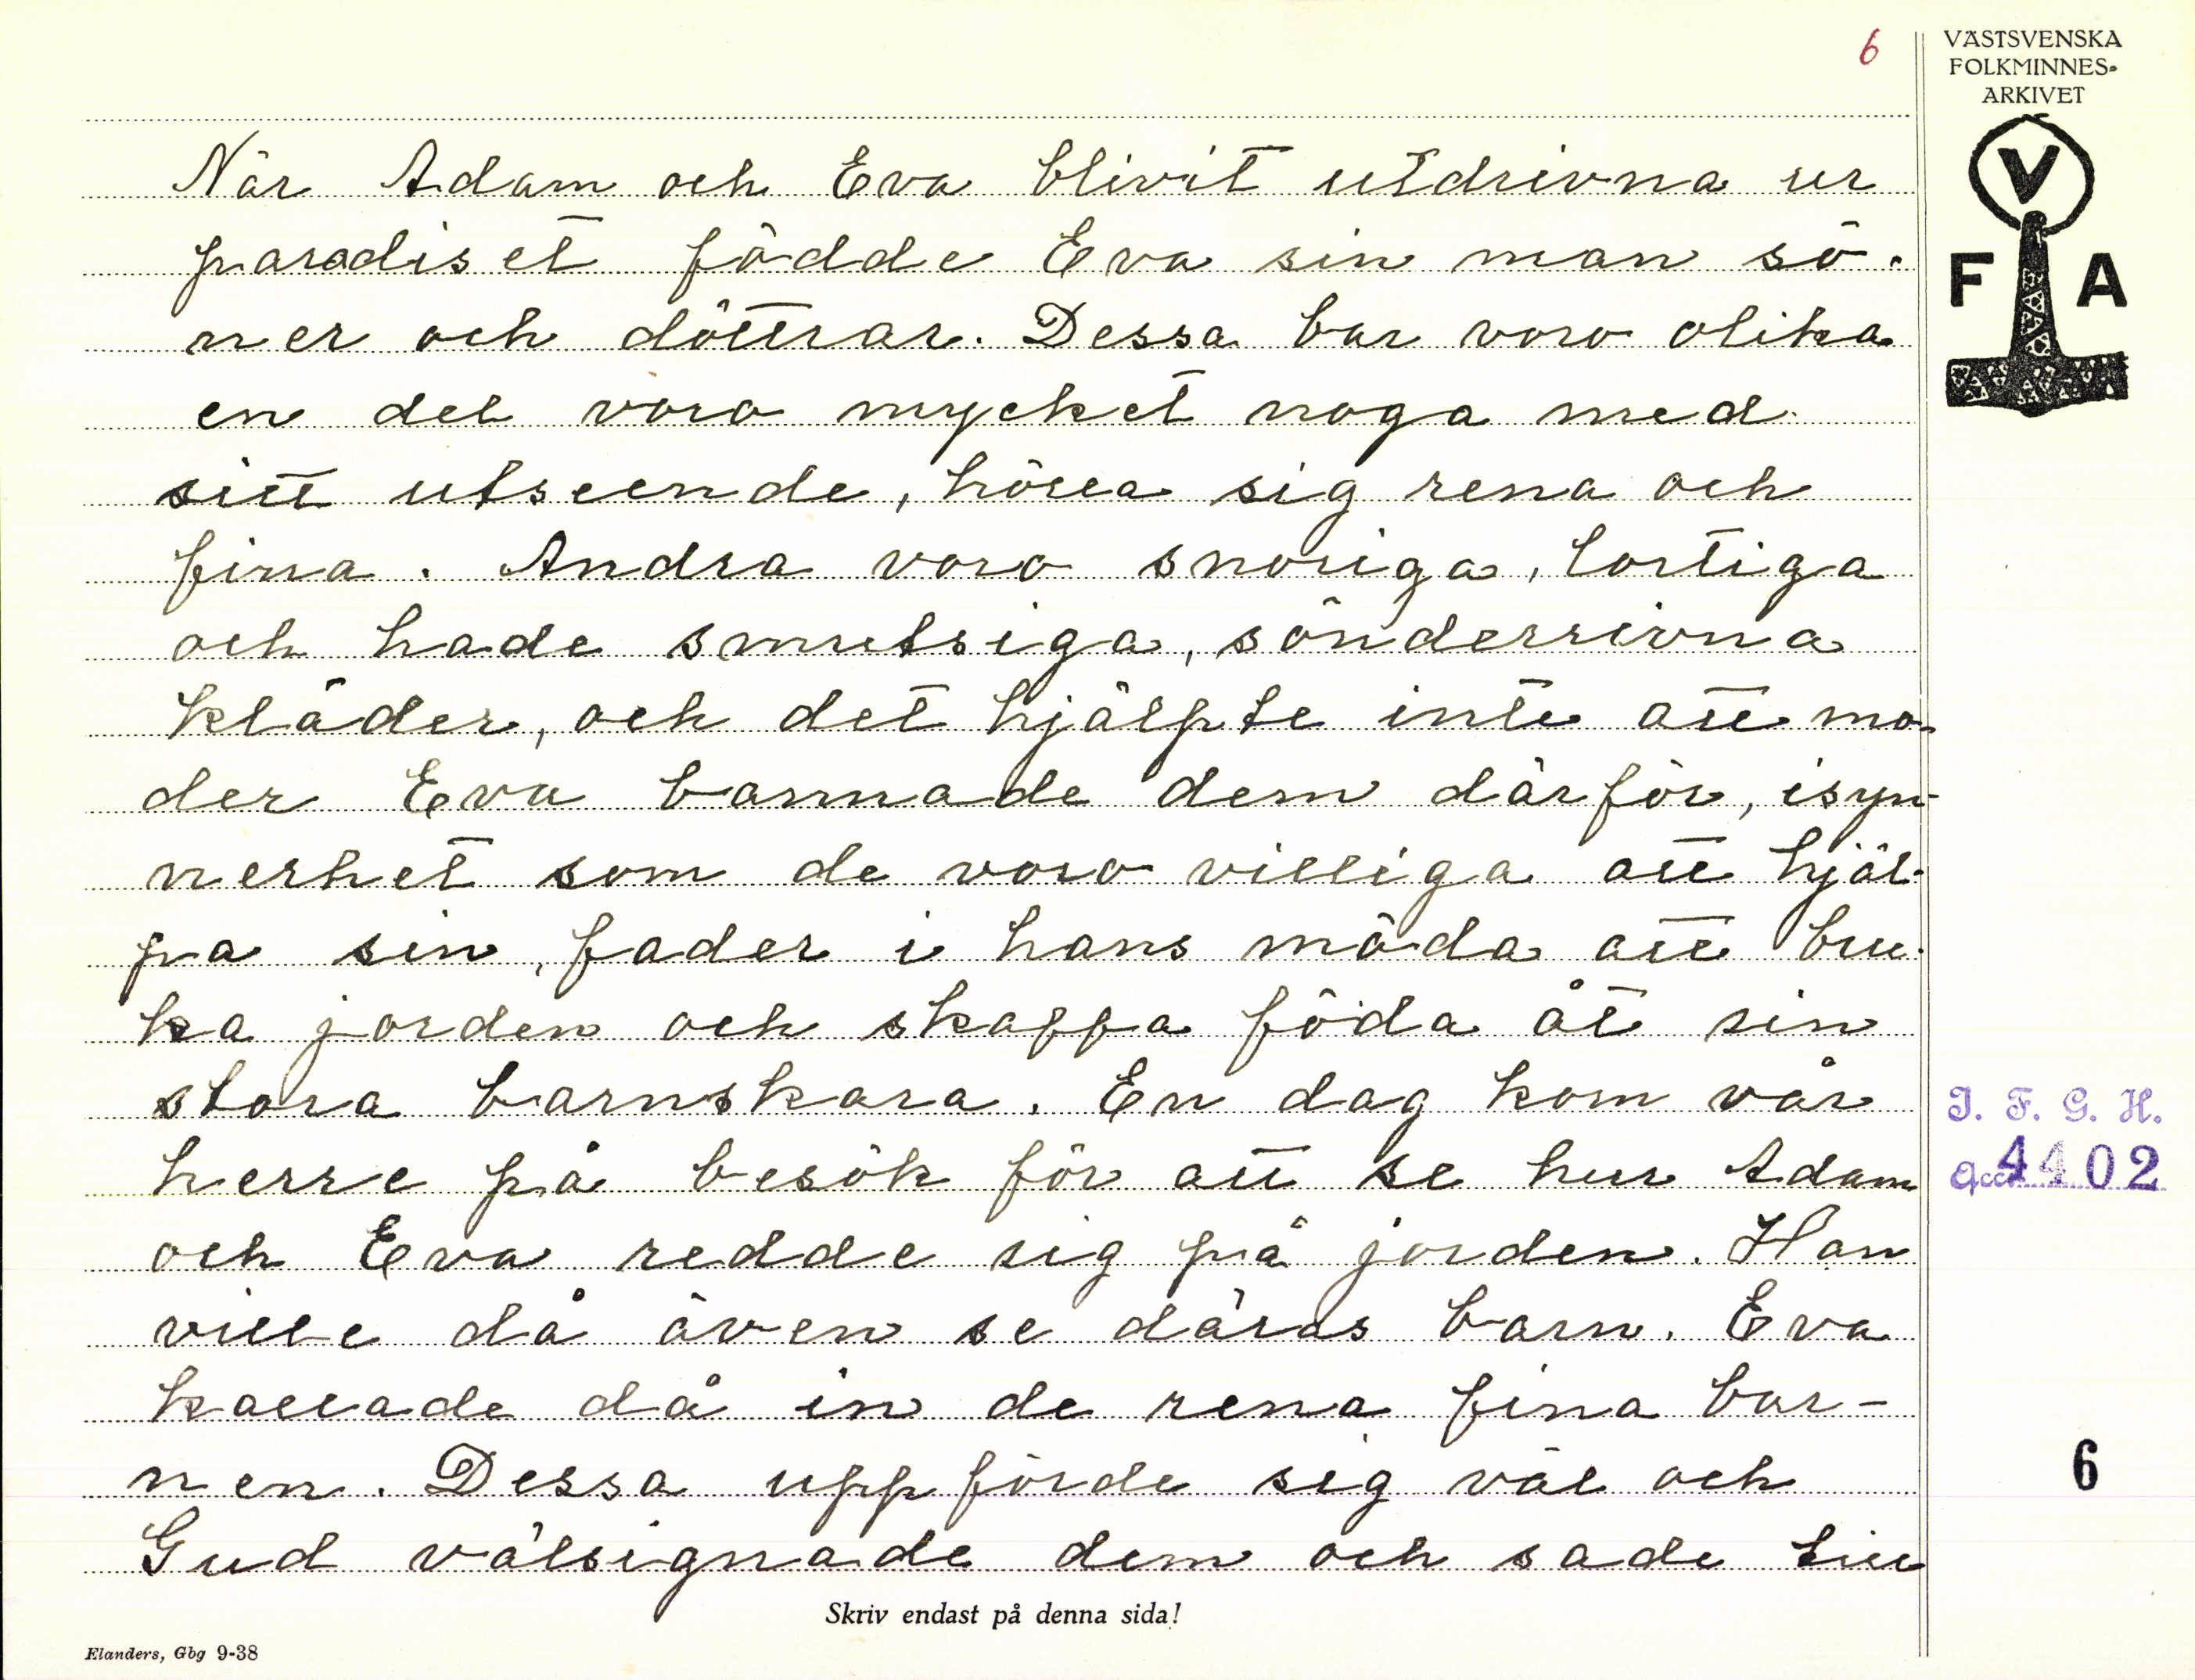 6
VÄSTSVENSKA
FOLKMINNES-
ARKIVET
V
F A
När Adam och Eva blivit utdrivna ur
paradiset födde Eva sin man sö-
ner och döttrar. Dessa bar voro olika
en del voro mycket noga med
sitt utseende, hölla sig rena och
fina. Andra voro snoriga, lortiga
och hade smutsiga, sönderrivna
kläder, och det hjälpte inte att mo-
der Eva bannade dem därför, isyn-
nerhet som de voro villiga att hjäl-
pa sin, fader i hans möda att bru-
ka jorden och skaffa föda åt sin
stora barnskara. En dag kom vår
herre på besök för att se hur Adam
och Eva redde sig på jorden. Han
ville då även se däras barn. Eva
kallade då in de rena fina bar-
nen. Dessa uppförde sig väl och
Gud välsignade dem och sade till
I. F. G. H.
acc. 4402
6
Skriv endast på denna sida!
Elanders, Gbg 9-38